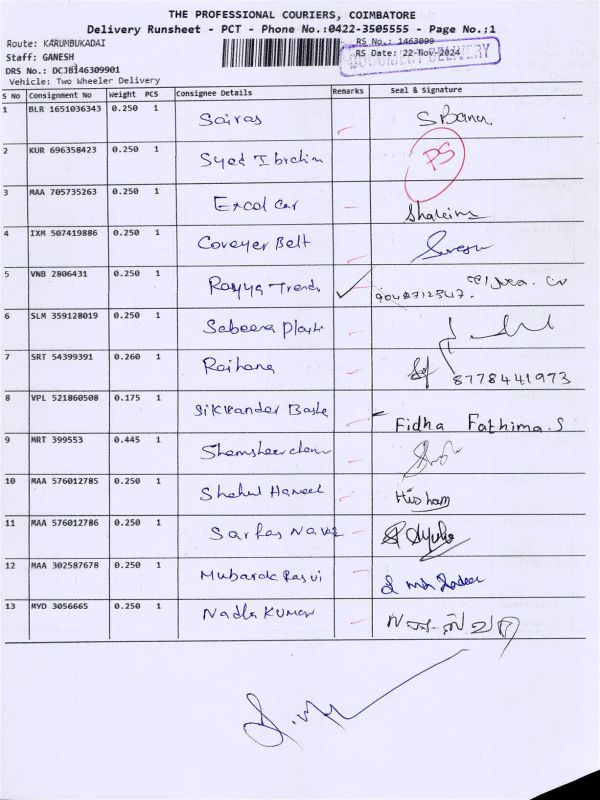 THE PROFESSIONAL COURIERS, COIMBATORE
Delivery Runsheet - PCT - Phone No.:0422-3505555 - Page No.;1
Route: KARUMBUKADAI RS No.: 1463099
Staff: GANESH RS Date: 22-Nov-2024
DOCUMENT DELIVERY
DRS No.: DCJB146309901
Vehicle: Two Wheeler Delivery
S No Consignment No Weight PCS Consignee Details Remarks Seal & Signature
1 BLR 1651036343 0.250 1 Sairas S Banu
2 KUR 696358423 0.250 1 Syed Ibrahim PS
3 MAA 705735263 0.250 1 Excel Car
4 IXM 507419886 0.250 1 Coveyer Belt
5 VNB 2806431 0.250 1 Trends
6 SLM 359128019 0.250 1 Sabeena
7 SRT 54399391 0.260 1 Raihana 8778441973
8 VPL 521860508 0.175 1 Sikkander Fidha Fathima.S
9 MRT 399553 0.445 1
10 MAA 576012785 0.250 1 Shahul Hameed Hisham
11 MAA 576012786 0.250 1 Sarfas
12 MAA 302587678 0.250 1
13 MYD 3056665 0.250 1 Kumar